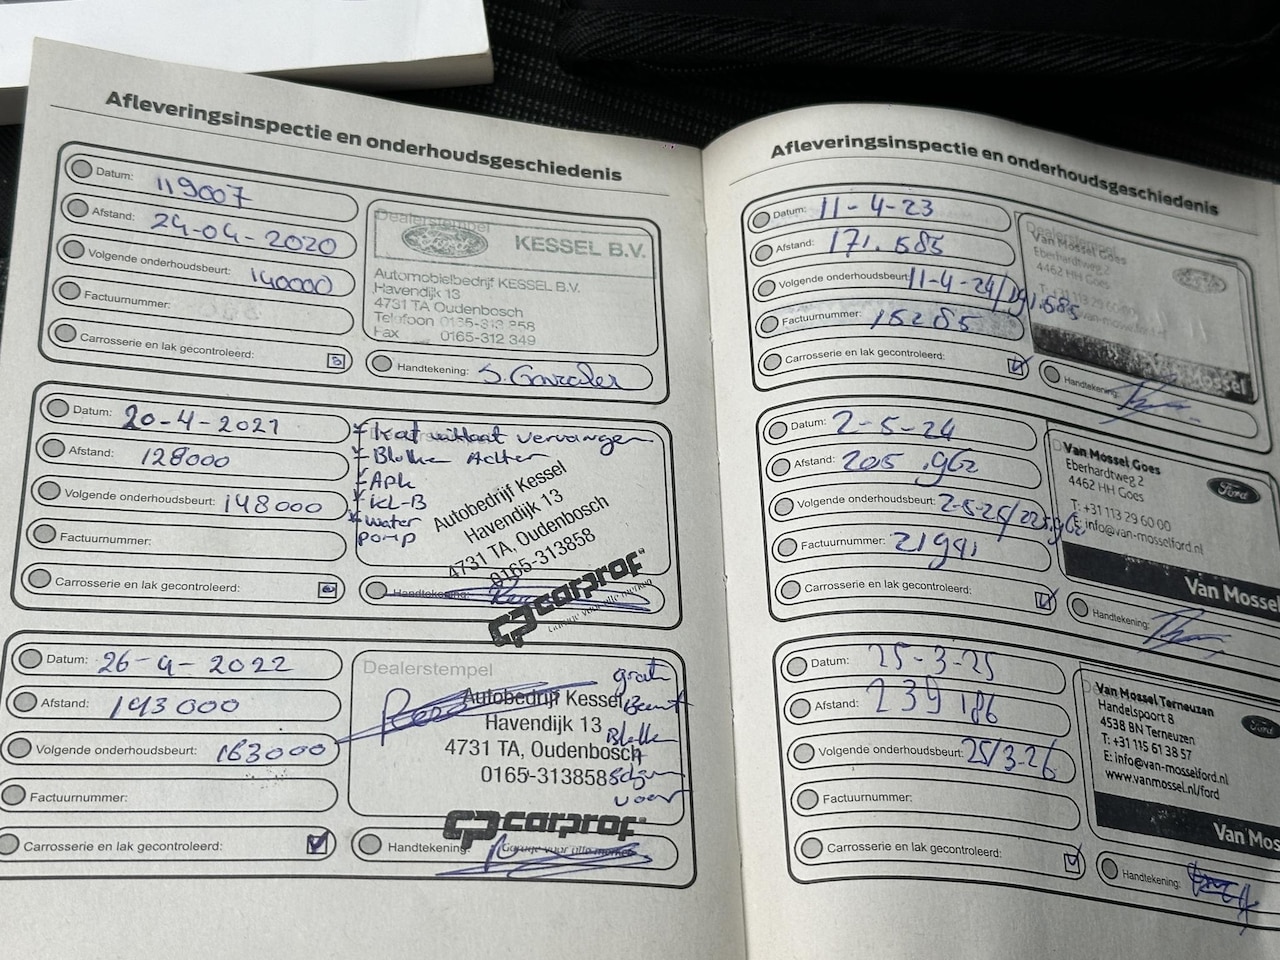 Afleveringsinspectie en onderhoudsgeschiedenis
Datum: 119007
Afstand: 24-04-2020
Volgende onderhoudsbeurt: 140000
Factuurnummer:
Carrosserie en lak gecontroleerd:
Dealerstempel
Ford KESSEL B.V.
Automobielbedrijf KESSEL B.V.
Havendijk 13
4731 TA Oudenbosch
Telefoon 0165-313 858
Fax 0165-312 349
Handtekening:
Datum: 20-4-2021
Afstand: 128000
Volgende onderhoudsbeurt: 148000
Factuurnummer:
Carrosserie en lak gecontroleerd:
* Kat uitlaat vervangen
* Blokken Achter
* Apk
* KL-B
* water
pomp
Autobedrijf Kessel
Havendijk 13
4731 TA, Oudenbosch
0165-313858
cp carprof
Garage voor alle merken
Handtekening:
Datum: 26-4-2022
Afstand: 143000
Volgende onderhoudsbeurt: 163000
Factuurnummer:
Carrosserie en lak gecontroleerd:
Dealerstempel
Autobedrijf Kessel
Havendijk 13
4731 TA, Oudenbosch
0165-313858
grote
Beurt
Blokken
voor
cp carprof
Garage voor alle merken
Handtekening:
Afleveringsinspectie en onderhoudsgeschiedenis
Datum: 11-4-23
Afstand: 171.585
Volgende onderhoudsbeurt: 11-4-24/191.585
Factuurnummer: 15285
Carrosserie en lak gecontroleerd:
Dealerstempel
Van Mossel Goes
Eberhardtweg 2
4462 HH Goes
T: +31 113 29 60 00
Van Mossel
Handtekening:
Datum: 2-5-24
Afstand: 205.962
Volgende onderhoudsbeurt: 2-5-25/225.962
Factuurnummer: 21991
Carrosserie en lak gecontroleerd:
Van Mossel Goes
Eberhardtweg 2
4462 HH Goes
T: +31 113 29 60 00
E: info@van-mosselford.nl
Ford
Van Mossel
Handtekening:
Datum: 25-3-25
Afstand: 239186
Volgende onderhoudsbeurt: 25/3-26
Factuurnummer:
Carrosserie en lak gecontroleerd:
Van Mossel Terneuzen
Handelspoort 8
4538 BN Terneuzen
T: +31 115 61 38 57
E: info@van-mosselford.nl
www.vanmossel.nl/ford
Ford
Van Mos
Handtekening: